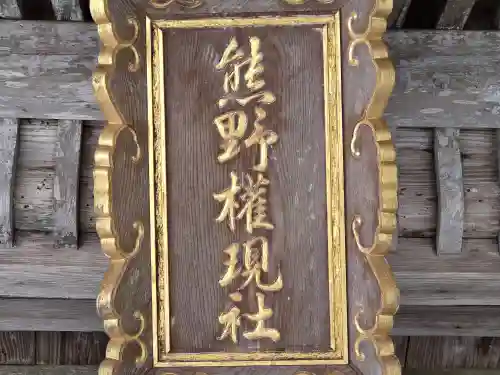 熊野權現社